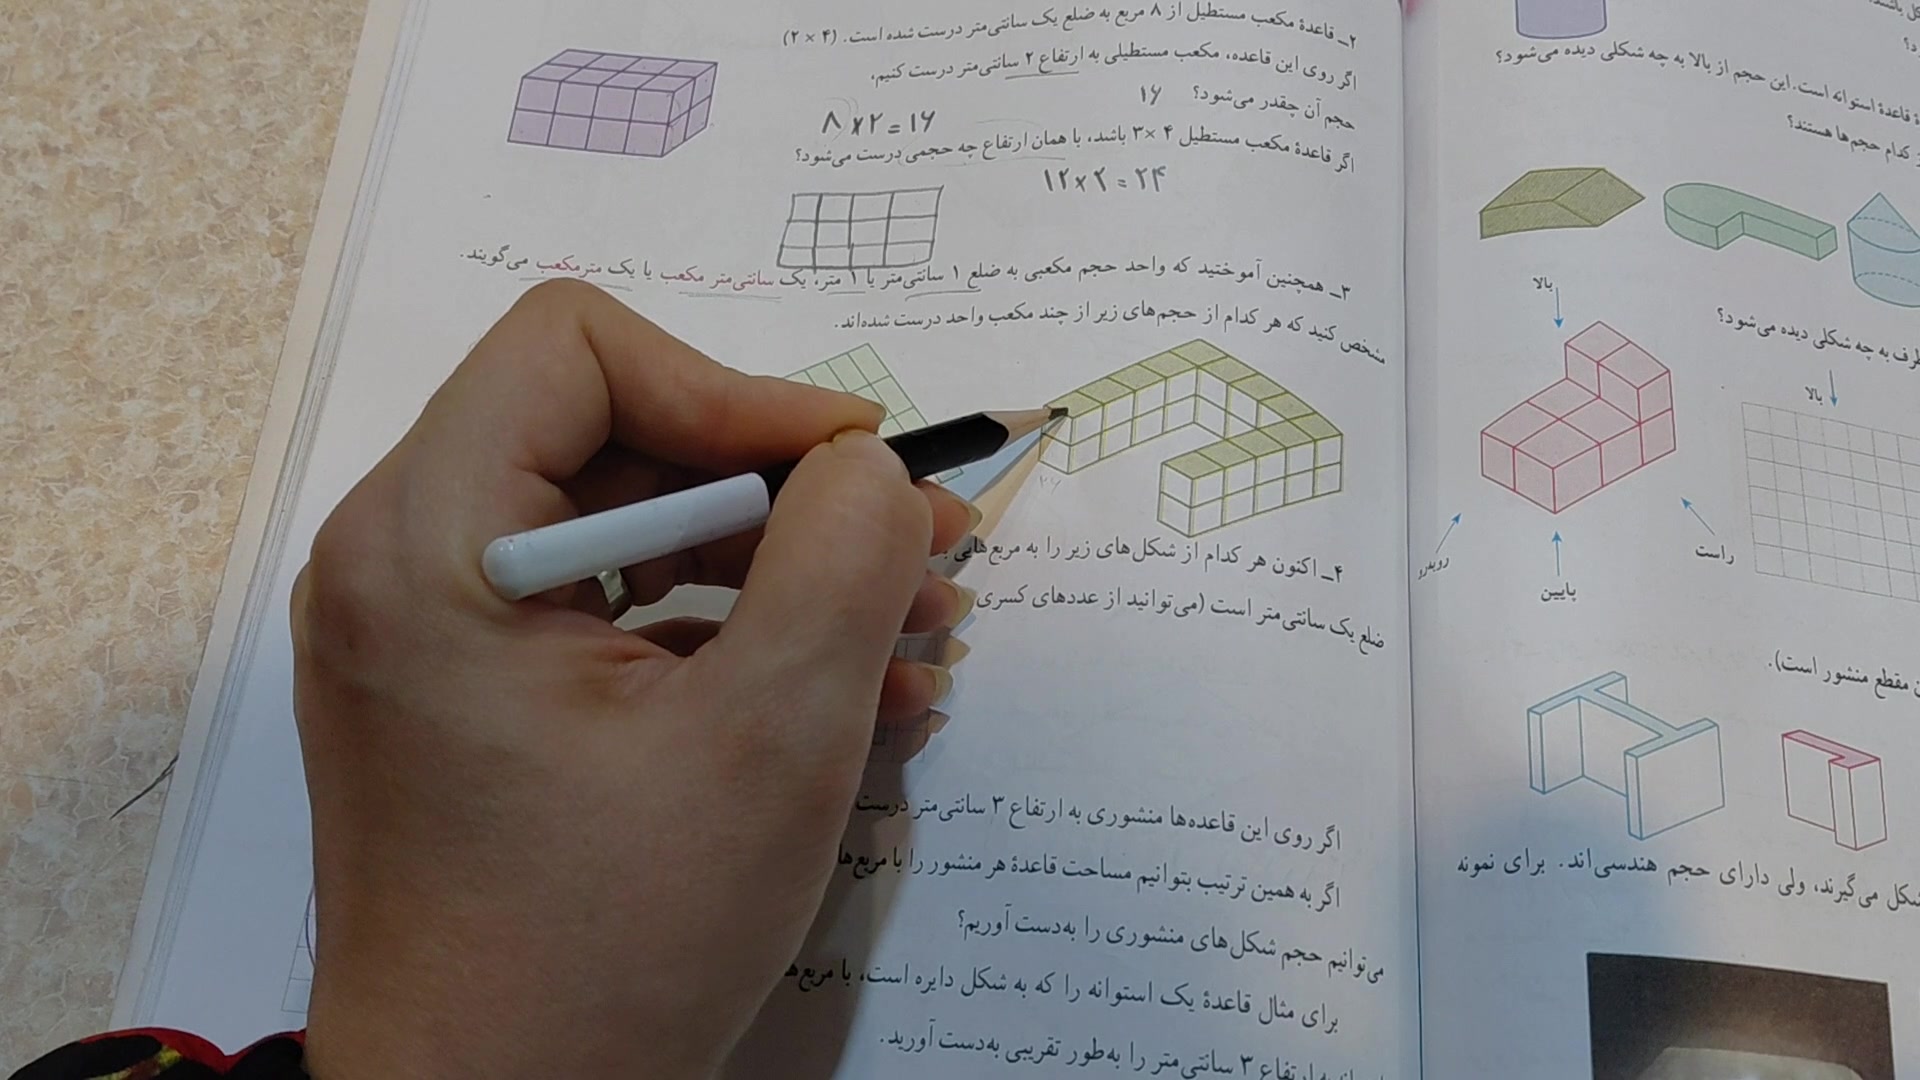 ۲ــ قاعدهٔ مکعب مستطیل از ۸ مربع به ضلع یک سانتی‌متر درست شده است. (۲ × ۴)
اگر روی این قاعده، مکعب مستطیلی به ارتفاع ۲ سانتی‌متر درست کنیم،
حجم آن چقدر می‌شود؟ ۱۶
۸ × ۲ = ۱۶
اگر قاعدهٔ مکعب مستطیل ۴ × ۳ باشد، با همان ارتفاع چه حجمی درست می‌شود؟
۱۲ × ۲ = ۲۴
۳ــ همچنین آموختید که واحد حجم مکعبی به ضلع ۱ سانتی‌متر یا ۱ متر، یک سانتی‌متر مکعب یا یک مترمکعب می‌گویند.
مشخص کنید که هر کدام از حجم‌های زیر از چند مکعب واحد درست شده‌اند.
۴ــ اکنون هر کدام از شکل‌های زیر را به مربع‌هایی
ضلع یک سانتی‌متر است (می‌توانید از عددهای کسری
اگر روی این قاعده‌ها منشوری به ارتفاع ۳ سانتی‌متر درست
اگر به همین ترتیب بتوانیم مساحت قاعدهٔ هر منشور را با مربع‌ها
می‌توانیم حجم شکل‌های منشوری را به‌دست آوریم؟
برای مثال قاعدهٔ یک استوانه را که به شکل دایره است، با مربع‌ها
به ارتفاع ۳ سانتی‌متر را به‌طور تقریبی به‌دست آورید.
قاعدهٔ استوانه است. این حجم از بالا به چه شکلی دیده می‌شود؟
کدام حجم‌ها هستند؟
بالا
به چه شکلی دیده می‌شود؟
بالا
راست
روبه‌رو
پایین
مقطع منشور است).
شکل می‌گیرند، ولی دارای حجم هندسی‌اند. برای نمونه